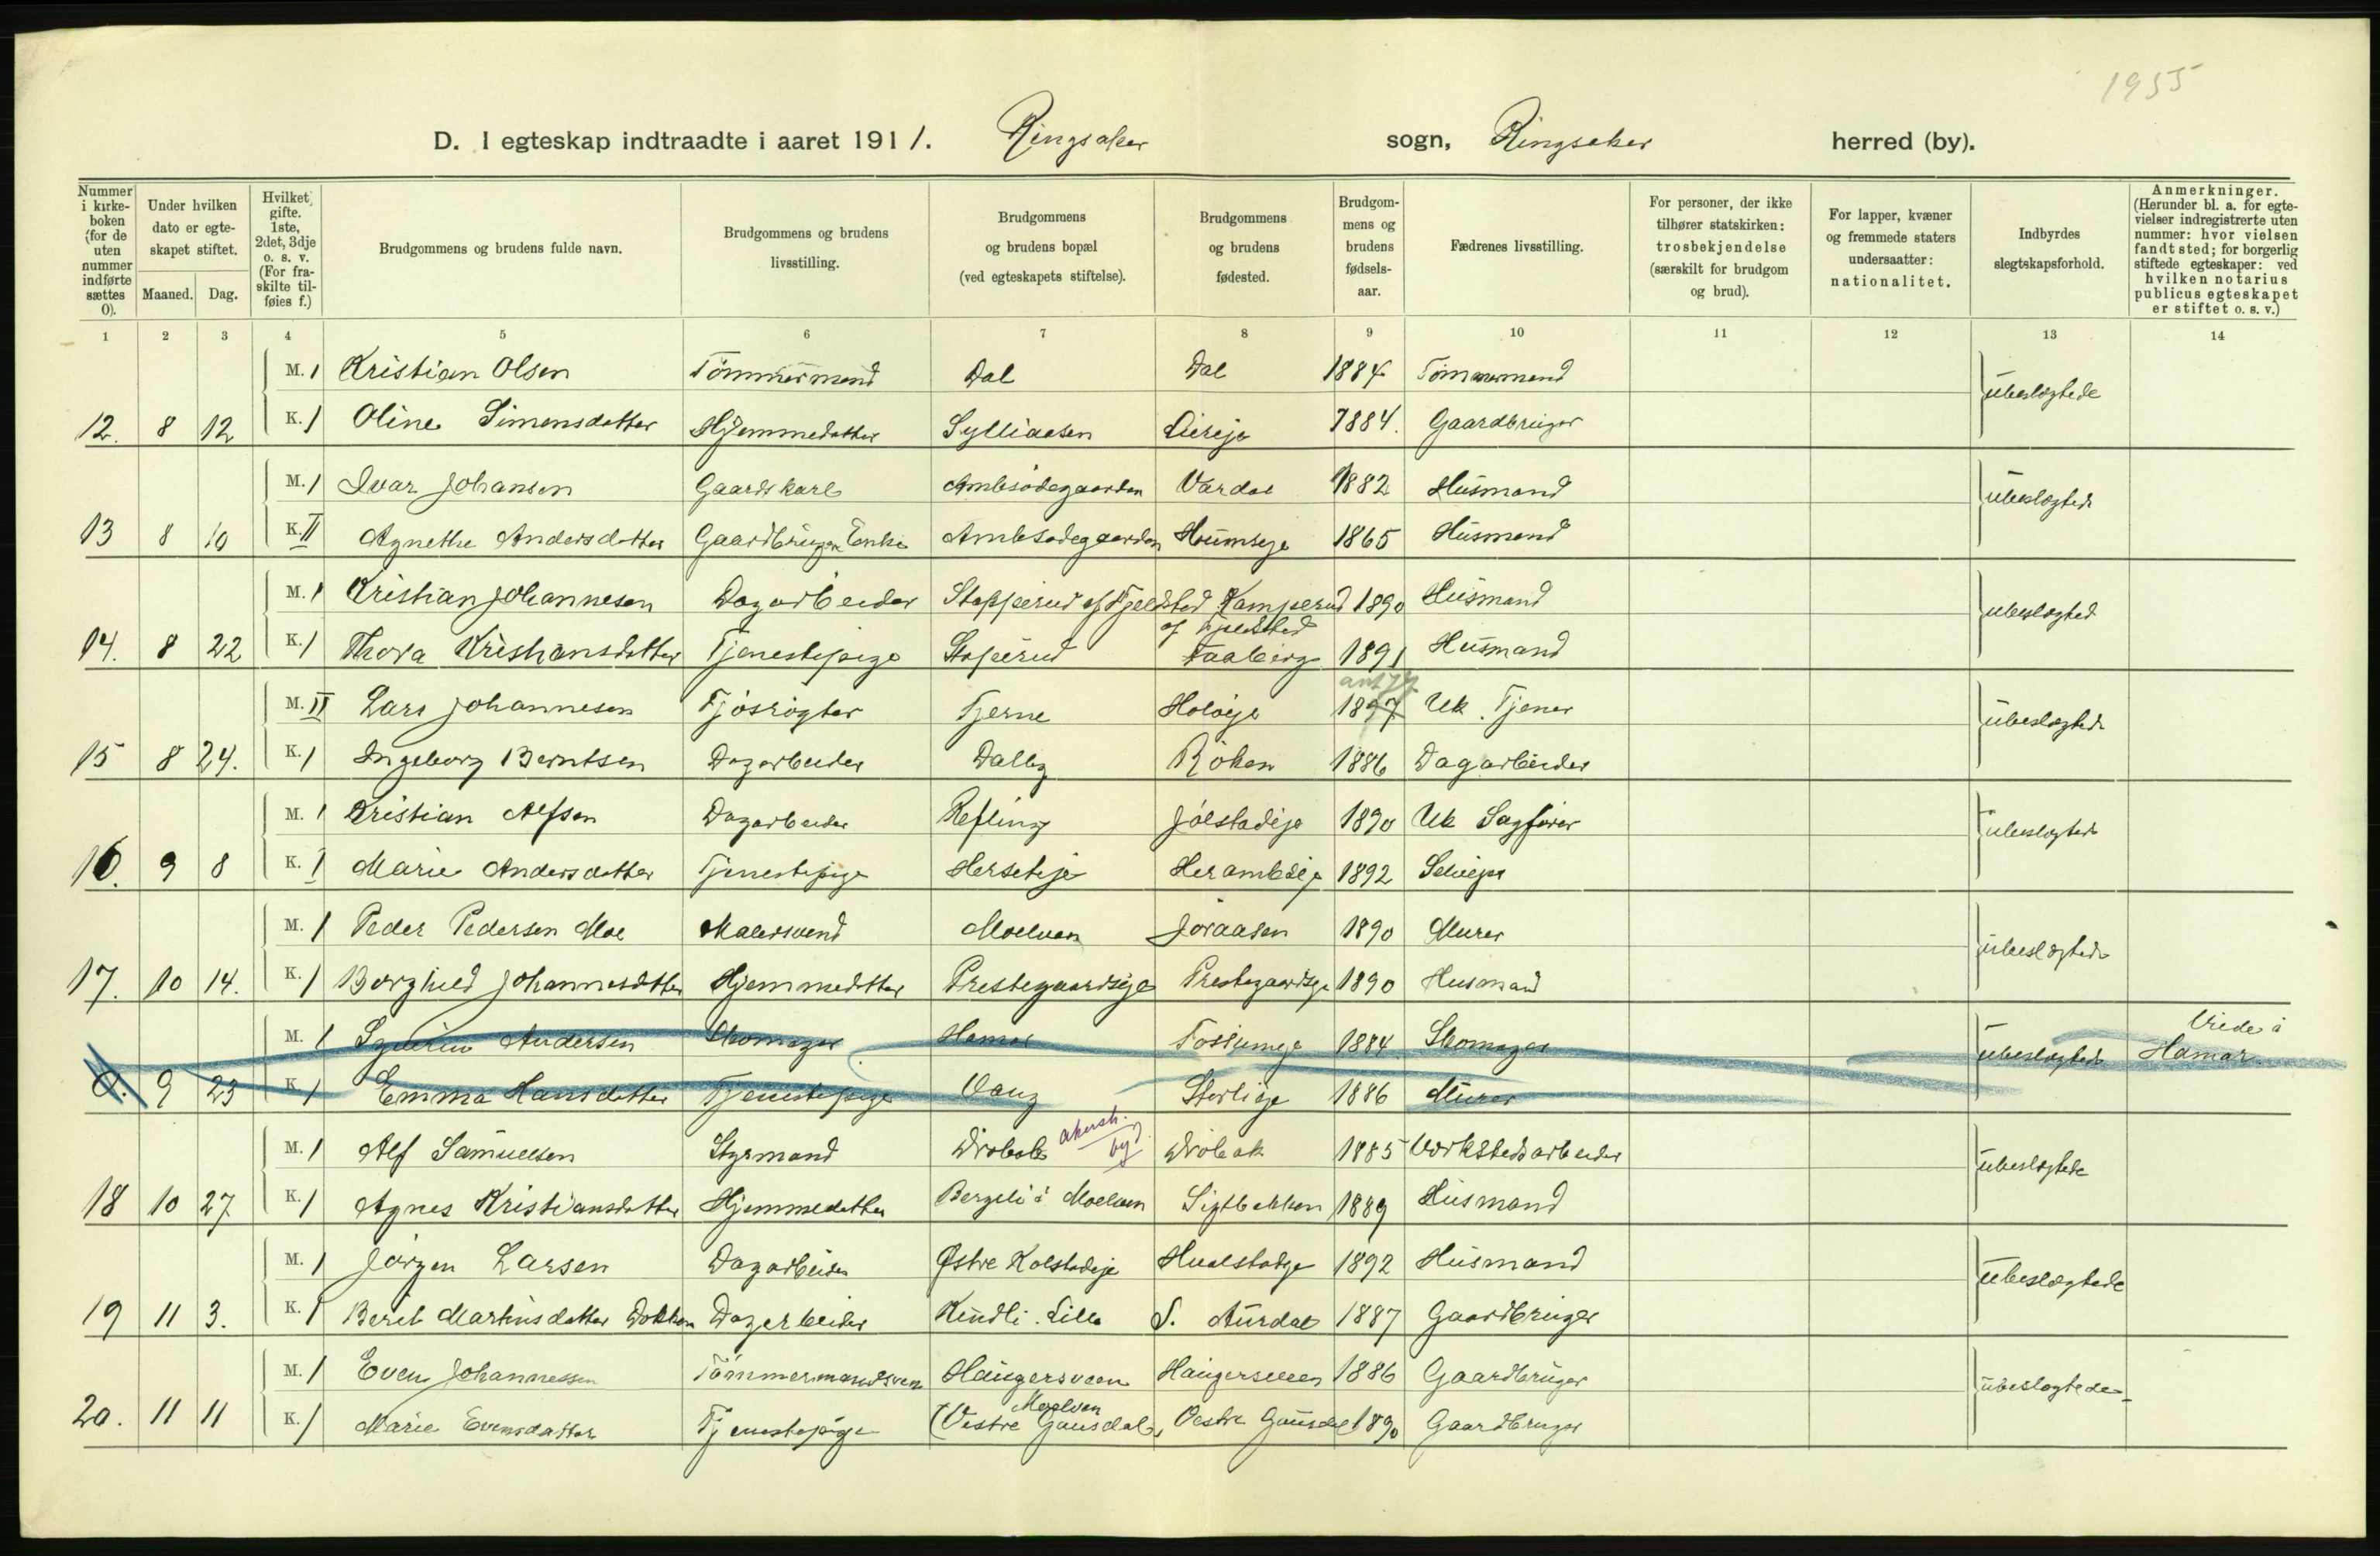 1955
D. I egteskap indtraadte i aaret 1911. Ringsaker sogn, Ringsaker herred (by).
Nummer i kirke-boken (for de uten nummer indførte sættes 0).
Under hvilken dato er egte-skapet stiftet.
Maaned. Dag.
Hvilket gifte. 1ste, 2det, 3dje o. s. v. (For fra-skilte til-føies f.)
Brudgommens og brudens fulde navn.
Brudgommens og brudens livsstilling.
Brudgommens og brudens bopæl (ved egteskapets stiftelse).
Brudgommens og brudens fødested.
Brudgom-mens og brudens fødsels-aar.
Fædrenes livsstilling.
For personer, der ikke tilhører statskirken: trosbekjendelse (særskilt for brudgom og brud).
For lapper, kvæner og fremmede staters undersaatter: nationalitet.
Indbyrdes slegtskapsforhold.
Anmerkninger. (Herunder bl. a. for egte-vielser indregistrerte uten nummer: hvor vielsen fandt sted; for borgerlig stiftede egteskaper: ved hvilken notarius publicus egteskapet er stiftet o. s. v.)
1 2 3 4 5 6 7 8 9 10 11 12 13 14
M. 1 Kristian Olsen Tömmermand Dal Dal 1884 Tömmermand ubeslægtede
12. 8 12 K. 1 Oline Simensdatter Hjemmedatter Sylliaasen 1884. Gaardbruger
M. 1 Ivar Johansen Gaardskarl Ambsödegaarden Vardal 1882 Husmand ubeslægtede
13 8 10 K. II Agnethe Andersdatter Gaardbruger Enke Ambsödegaarden 1865 Husmand
M. 1 Kristian Johannesen Dagarbeider Stopperud af Fjeldstad Kamperud af Fjeldstad 1890 Husmand ubeslægted
14. 8 22 K. 1 Thora Kristiansdatter Tjenestepige Stoperud Faaberg 1891 Husmand
M. II Lars Johannesen Fjösrögter Tjerne 1857 Uk. Tjener ubeslægtede
15 8 24. K. 1 Ingeborg Berntsen Dagarbeider Dalby Röken 1886 Dagarbeider
M. 1 Kristian Alfsen Dagarbeider Refling Jölstadeje 1890 Uk Sagförer ubeslægtede
16. 9 8 K. 1 Marie Andersdatter Tjenestepige Herseteje 1892 Selveger
M. 1 Peder Pedersen Moe Malersvend Moelven Jöraasen 1890 Murer ubeslægtede
17. 10 14. K. 1 Borghild Johannesdatter Hjemmedatter Prestegaardseje Prestegaardseje 1890 Husmand
M. 1 Andersen Skomager Hamar 1884 Skomager ubeslægtede Viede i Hamar.
0. 9 23 K. 1 Emma Hansdatter Tjenestepige Vang 1886 Murer
M. 1 Alf Samuelsen Styrmand Dröbak akersh. by Dröbak 1885 Verkstedsarbeider ubeslægtede
18 10 27 K. 1 Agnes Kristiansdatter Hjemmedatter Bergeli i Moelven Sigtbakken 1889 Husmand
M. 1 Jörgen Larsen Dagarbeider Østre Kolstadeje 1892 Husmand ubeslægtede
19 11 3. K. 1 Berit Martinsdatter Dokken Dagarbeider Kindli Lille S. Aurdal 1887 Gaardbruger
M. 1 Even Johannessen Tömmermandsven Haugersveen Haugersveen 1886 Gaardbruger ubeslægtede
20. 11 11 K. 1 Marie Evensdatter Tjenestepige Moelven (Vestre Gausdal) Vestre Gausdal 1890 Gaardbruger